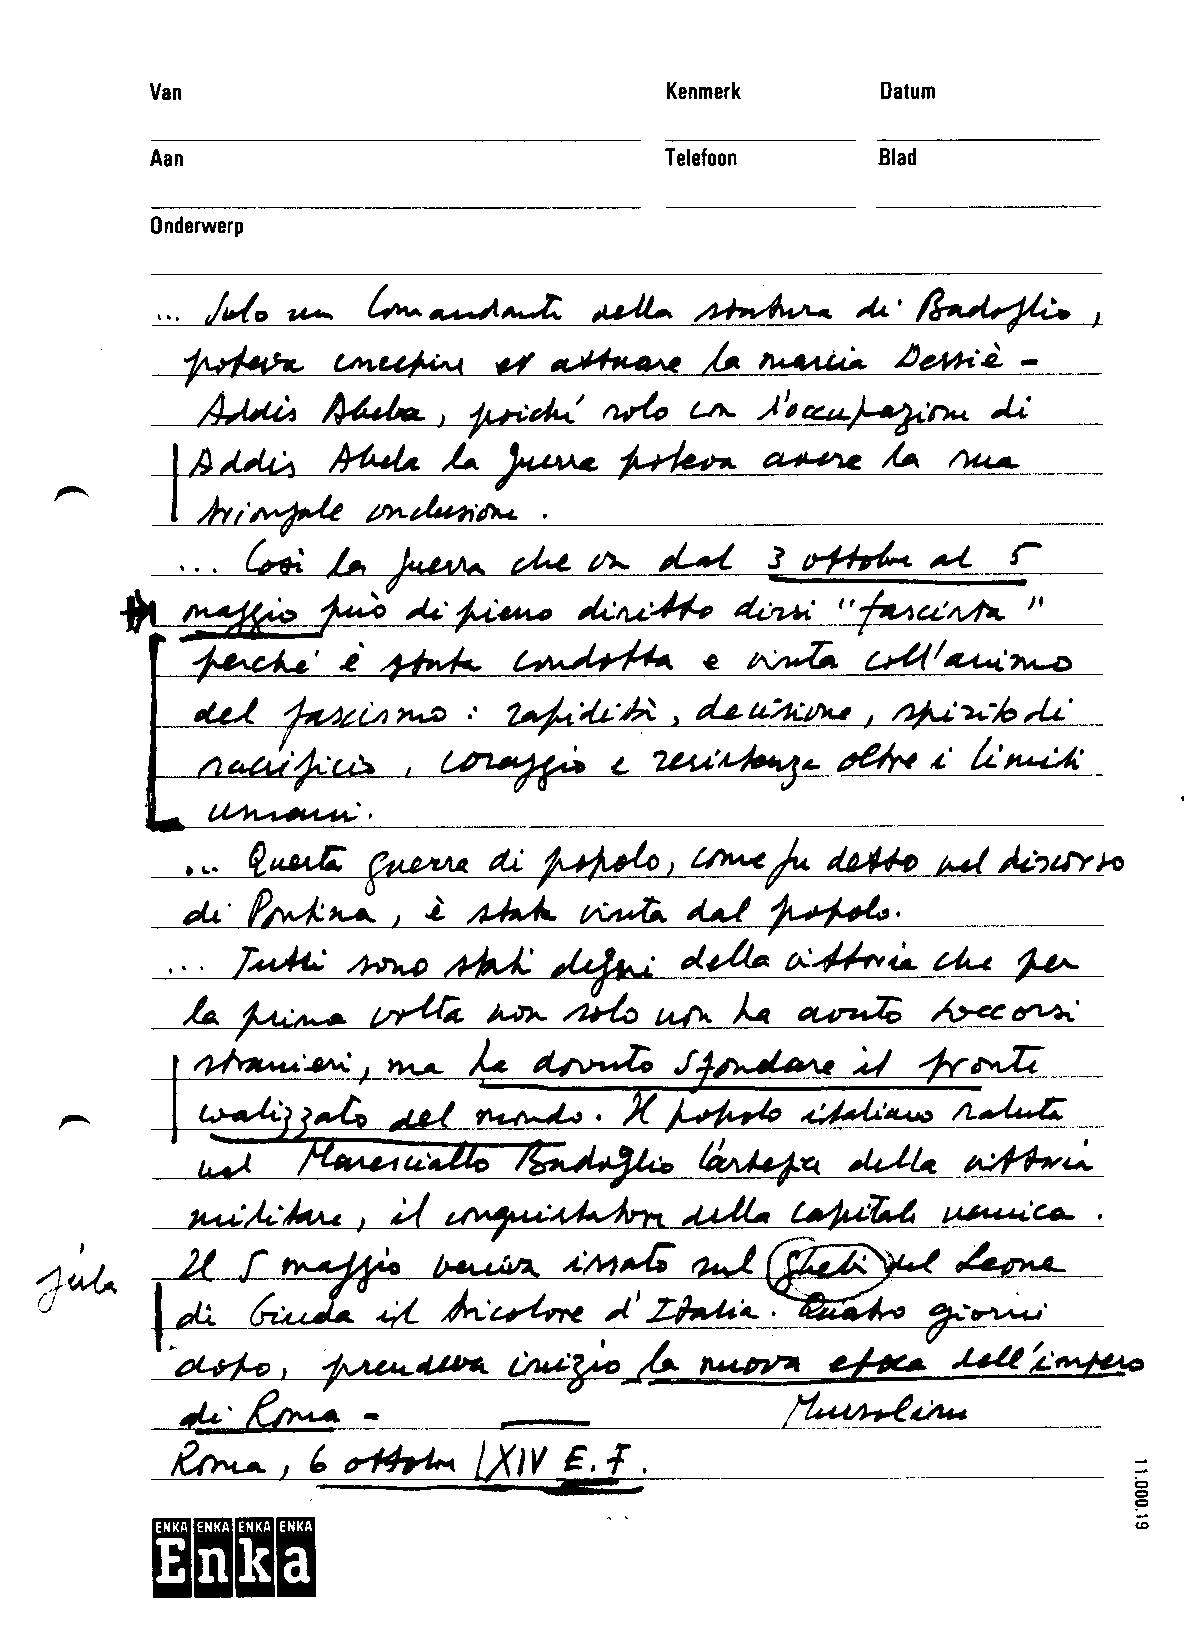 Van Kenmerk Datum
Aan Telefoon Blad
Onderwerp
... Solo un Comandante della statura di Badoglio,
poteva concepire et attuare la marcia Dessiè -
Addis Abeba, poiché solo con l'occupazione di
Addis Abeba la guerra poteva avere la sua
trionfale conclusione.
... Così la guerra che va dal 3 ottobre al 5
maggio può di pieno diritto dirsi "fascista"
perché è stata condotta e vinta coll'animo
del fascismo: rapidità, decisione, spirito di
sacrificio, coraggio e resistenza oltre i limiti
umani.
... Questa guerra di popolo, come fu detto nel discorso
di Pontina, è stata vinta dal popolo.
... Tutti sono stati degni della vittoria che per
la prima volta non solo non ha avuto soccorsi
stranieri, ma ha dovuto sfondare il fronte
coalizzato del mondo. Il popolo italiano saluta
nel Maresciallo Badoglio l'artefice della vittoria
militare, il conquistatore della capitale nemica.
Il 5 maggio veniva issato sul Ghebi del Leone
di Giuda il tricolore d'Italia. Quattro giorni
dopo, prendeva inizio la nuova epoca dell'impero
di Roma - Mussolini
Roma, 6 ottobre XIV E.F.
ENKA ENKA ENKA ENKA
Enka
11.000.19